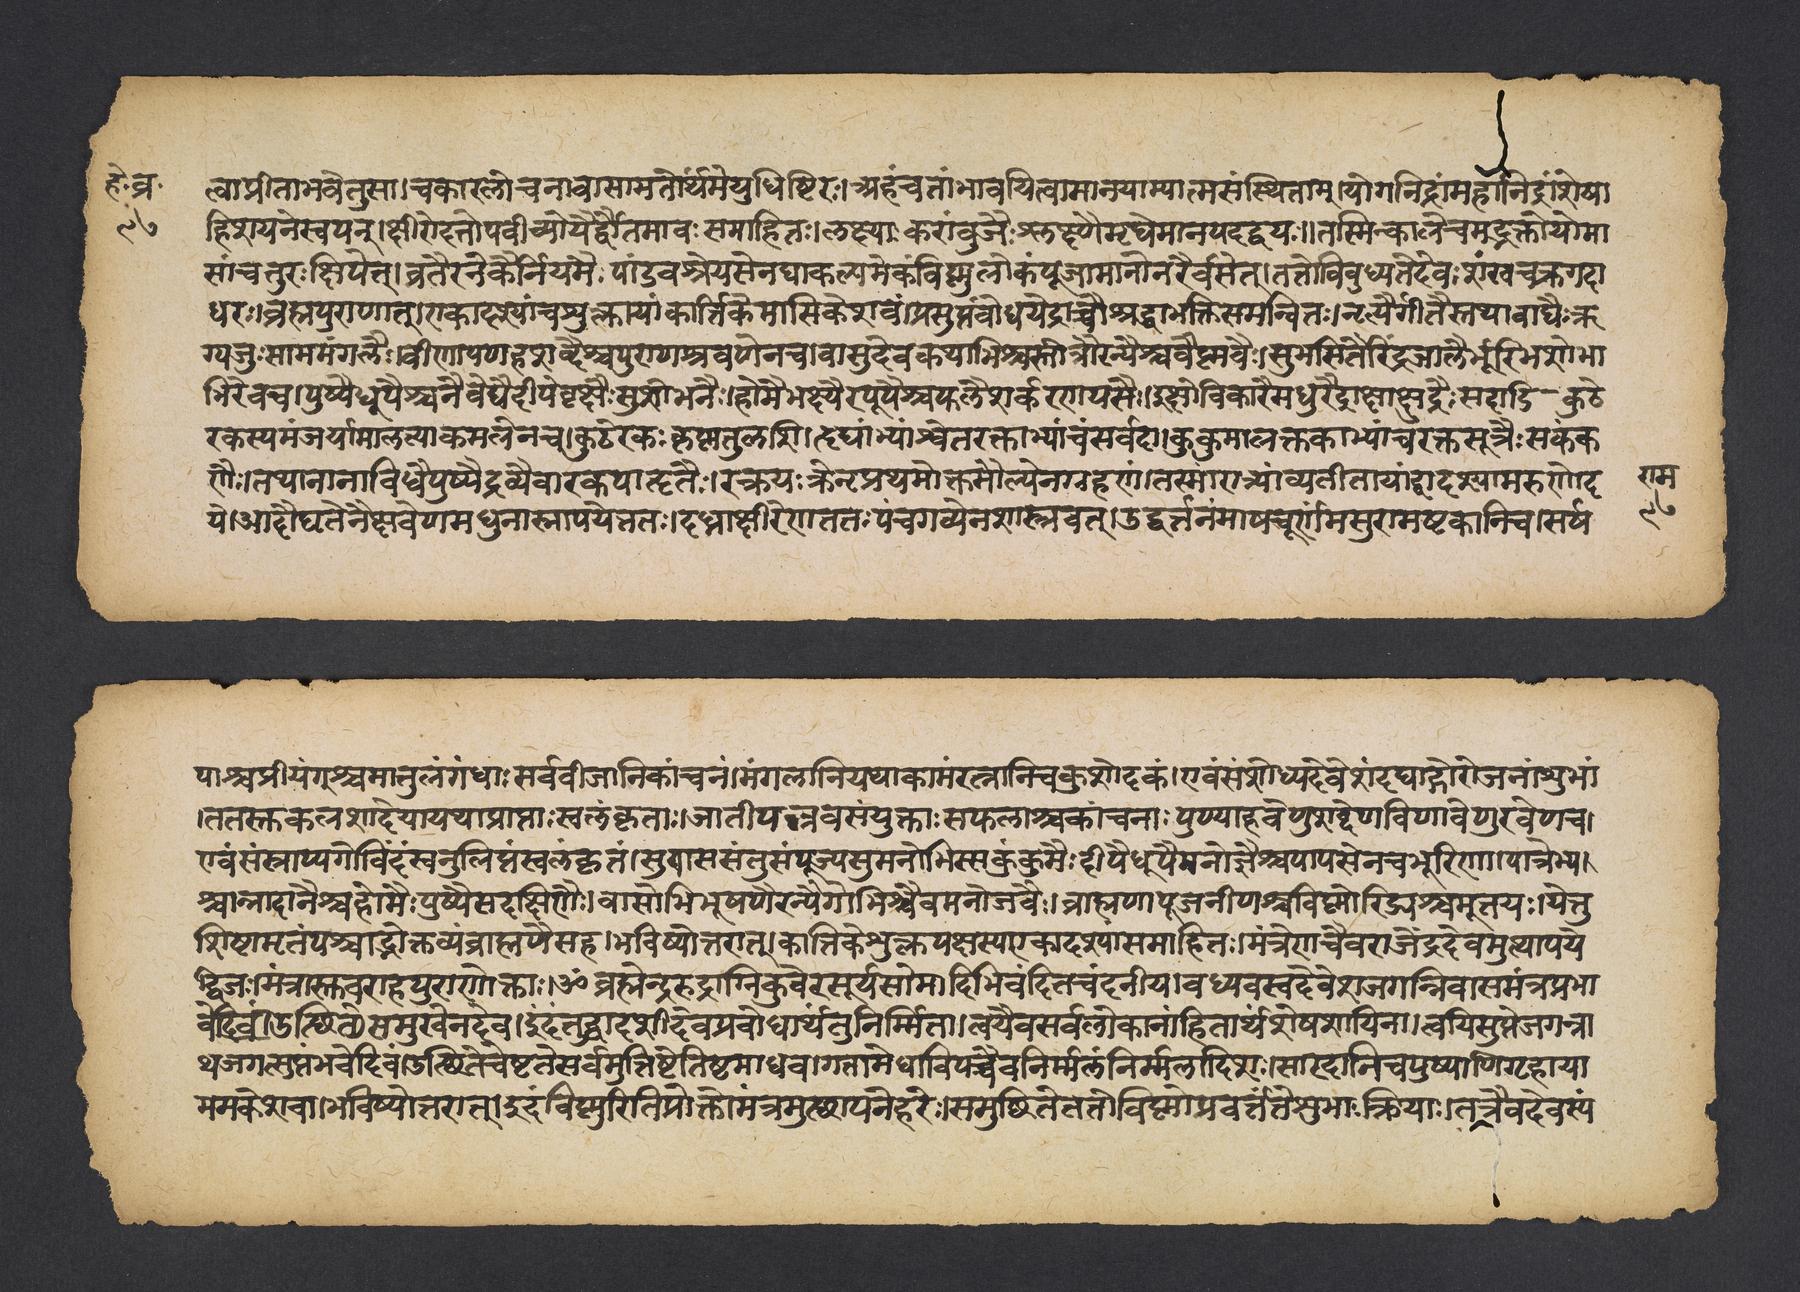 हे. व्र.
९७
त्वाप्रीताभवेत्तुसा।चकारलोचनावासामतोर्थंमेयुधिष्टिरः।अहंचतांभावयित्वामानयाम्यात्मसंस्थिताम्।योगनिद्रांमहानिद्रांशेषा
हिशयनेस्वपन्।क्षीरोदतोपवीच्योघैर्द्धौतमावः समाहितः।लक्ष्म्याः करांवुजैःश्लक्ष्णैमृद्यमानपदद्वयः॥तस्मिन्कालेचमद्भक्तोयोमा
सांचतुरः क्षिपेत्।व्रतैरनेकैर्नियमैः पांडवश्रेयसेनघाकल्पमेकंविष्णुलोकंपूज्यामानोनरैर्वसेत्।ततोविवुध्यतेदेवः शंखचक्रगदा
धरः।व्रह्मपुराणात्।एकादश्यांचशुक्लायांकार्त्तिकेमासिकेशवं।प्रसुप्तंवोधयेद्रात्रौश्रद्धाभक्तिसमन्वितः।नृत्यैर्गीतैस्तथावाद्यैःऋ
ग्यजुःसाममंगलैः।वीणापणहशव्दैश्चपुराणश्रवणेनच।वासुदेवकथाभिश्चस्तोत्रैरन्यैश्चवैष्णवैः।सुभसितैरिंद्रजालैर्भूरिभशोभा
भिरेवच।पुष्पैधूपैश्चनैवेद्यैदीपवृक्षैःसुशोभनैः।होमैभक्ष्यैरपूपैश्चफलैशर्करणायसैः।इक्षोविकारैमधुरैद्राक्षाक्षौद्रैः सदाडि—कुठे
रकस्यमंजर्यामालत्याकमलेनच।कुठेरकः कृष्णतुलशि।दद्यांभ्यांश्वेतरक्ताभ्यांचंसर्वदा।कुकुमालक्तकाभ्यांचरक्तसूत्रैः सकंक
णैः।तथानानाविधैपुष्पैद्रव्यैवारकपादृतैः।रच्क्रयः क्रेनप्रथमोक्तमौल्येनग्रहणं।तस्मांरात्र्यांव्यतीतायांद्वादश्यामरुणोद
ये।आदौघृतेनैक्षवेणमधुनास्नापयेत्ततः।दध्नाक्षीरेणततः पंचगव्येनशास्त्रवत्।उद्वर्त्तनंमाषचूर्णंमसुरामष्टकानिच।सर्षे
राम
९७
पाश्चप्रीयंगुश्चमातुलंगंधाः सर्ववीजानिकांचनं।मंगलानियथाकामंरत्नानिचकुशोदकं।एवंसंशोध्यदेवेशंदद्याद्गोरोजनांशुभां
।ततस्तकलशादेयायथाप्राप्ताःस्वलंकृताः।जातीपल्लवसंयुक्ताः सफलाश्चकांचनाः पुण्याहवेणुशव्देणविणावेणुरवेणच।
एवंसंस्नाप्यगोविंदंस्वनुलिप्तंस्वलंकृतं।सुवाससंतुसंपूज्यसुमनोभिस्सकुंकुमैः दीपैधूपैमनोज्ञैश्चपापसेनचभूरिणा।पात्रेभ्य।
श्चान्नादानैश्चहोमैः पुष्पैसदक्षिणैः।वासोभिभूषणैरन्यैगोभिश्चैवमनोजवैः।व्राह्मणापूजनीणश्चविष्णोरिज्यश्चमूतयः।येत्तु
शिष्टामृतंपश्चाद्भोक्तव्यंव्राह्मणैसह।भविष्योत्तरात्।कार्त्तिकेशुक्लपक्षस्यएकादश्यांसमाहितः।मंत्रेणाचैवराजेंद्रदेवमुत्थापये
द्द्विजः।मंत्रास्तवराहपुराणोक्ताः।ॐव्रह्मेन्द्ररुद्राग्निकुवेरसूर्यसोमादिभिवंदितचंदनीय।वध्यवस्वदेवेशजगन्निवासमंत्रप्रभा
वेदिवं।उत्थितेसमुखेनदेव।इदंतुद्वादशीदेवप्रवोधार्थंतुनिर्म्मिता।त्वयैवसर्वलोकानांहितार्थंशेषशायिना।त्वयिसुप्तेजगन्ना
थजगत्सुप्तंभवेदिवं।उत्थितेचेष्टतेसर्वमुत्तिष्टेतिष्टमाधव।गतामेधाविपच्चैवनिर्म्मलंनिर्म्मलादिशः।सारदानिचपुष्पाणिगृहाया
ममकेशवा।भविष्योत्तरात्।इदंविष्णुरितिप्रोक्तोमंत्रमुत्थापनेहरेः।समुत्थितेततोविष्णोप्रवर्त्तंतेशुभाः क्रियाः।तत्रैवदेवस्यं